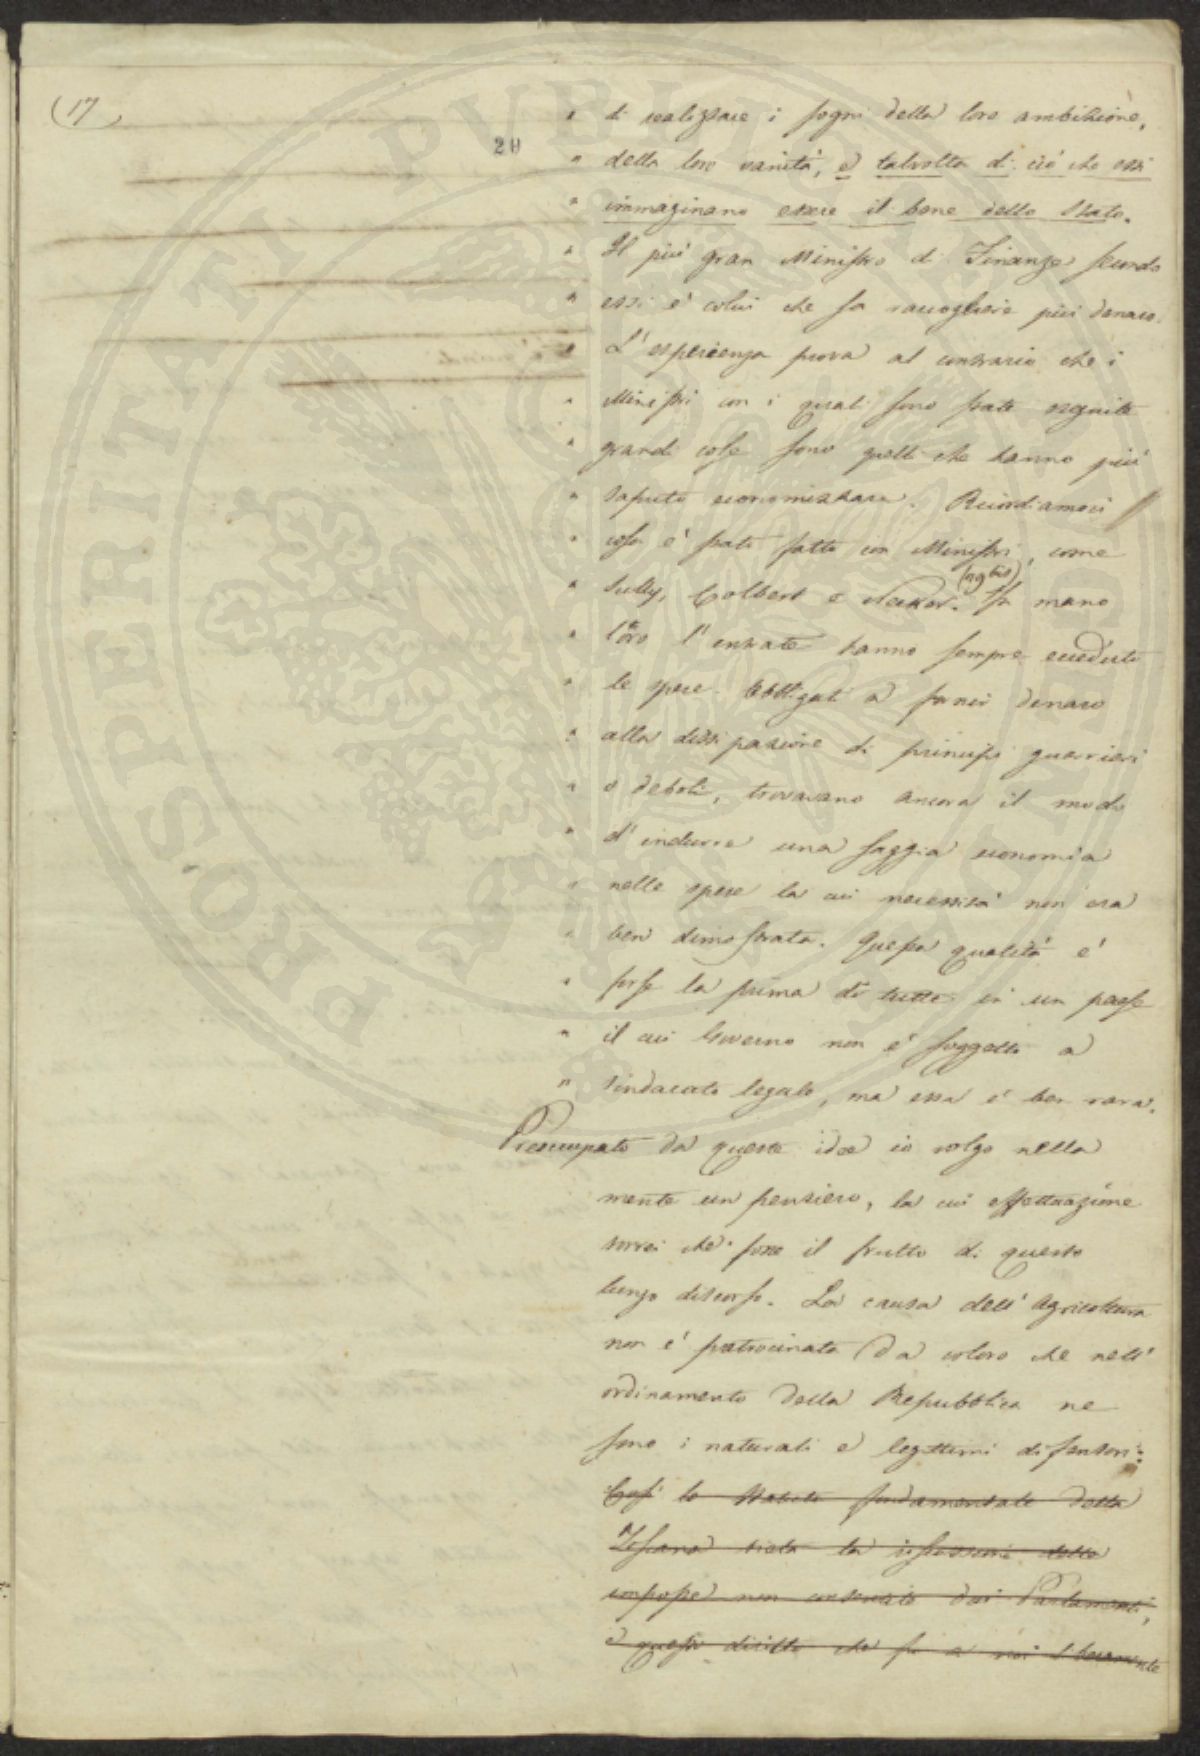 (17)
20
" di realizzare i sogni della loro ambizione,
" della loro vanità, e talvolta di ciò che essi
" immaginano essere il bene dello Stato.
" Il più gran Ministro di Finanze secondo
" essi è colui che sa raccogliere più denaro.
" L'esperienza prova al contrario che i
" Ministri con i quali sono state eseguite
" grandi cose sono quelli che hanno più
" saputo economizzare. Ricordiamoci
" cosa è stato fatto con Ministri, come
" Sully, Colbert e Necker. In mano
" loro l'entrate hanno sempre ecceduto
" le spese. Obbligati a fornir denaro
" alla dissipazione di principi guerrieri
" o deboli, trovavano ancora il modo
" d'indurre una saggia economia
" nelle spese la cui necessità non era
" ben dimostrata. Questa qualità è
" forse la prima di tutte in un paese
" il cui Governo non è soggetto a
" sindacato legale, ma essa è ben rara.
Preoccupato da queste idee io volgo nella
mente un pensiero, la cui effettuazione
vorrei che fosse il frutto di questo
lungo discorso. La causa dell'Agricoltura
non è patrocinata da coloro che nell'
ordinamento della Repubblica ne
sono i naturali e legittimi difensori:
Così lo Statuto fundamentale della
Toscana vieta la riscossione delle
imposte non consentite dai Parlamenti,
e questo diritto che fu a noi liberamente
PROSPERITATI PVBLICAE